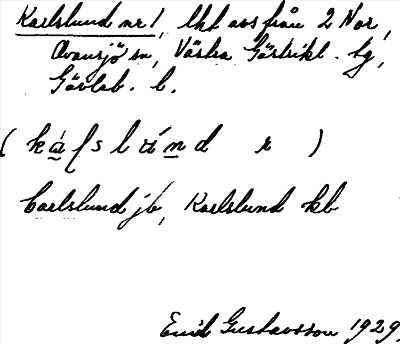 Karlslund nr 1, lht avs från 2 Nor,
Ovansjö sn, Västra Gästrikl. tg,
Gävleb. l.
( k a l s l u n d r )
Carlslund jb, Karlslund kb
Enid Gustavsson 1929.